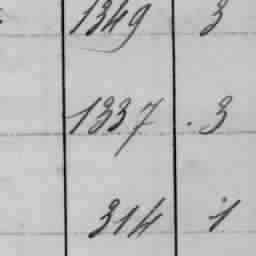 1349 3
1337 . 3
314 1